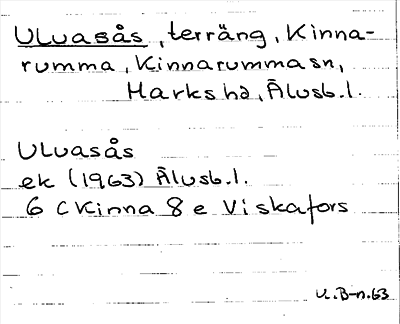 Ulvasås, terräng, Kinna-
rumma, Kinnarummasn,
Marks hd, Älvsb.l.
Ulvasås
ek (1963) Älvsb.l.
6 C Kinna 8 e Viskafors
U.B-n.63